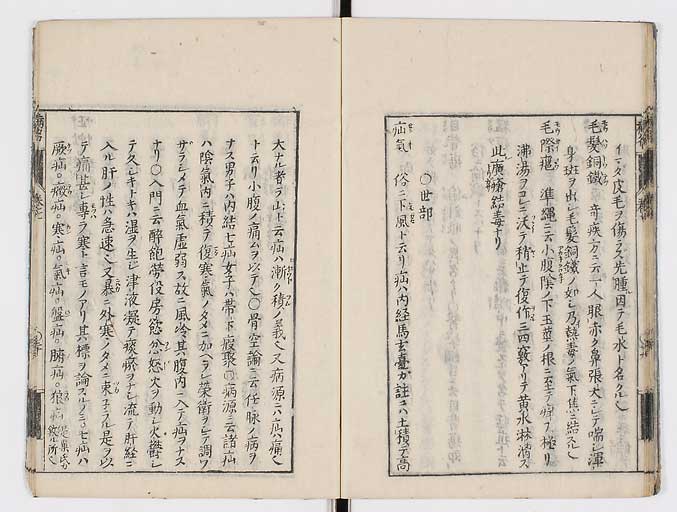 タダ皮毛ヲ傷ラス先腫因テ毛水ト名クル也
毛髮銅鐵 竒疾方ニ云一人眼赤ク鼻張大ニシテ喘シ渾
身斑ヲ出シ毛髮銅鐵ノ如シ乃熱毒ノ氣下焦ニ結スル也
毛際瘟 準繩ニ云小腹陰ノ下玉莖ノ根ニ至テ痒ヿ極リ
沸湯ヲコレニ沃テ稍止テ復作三四竅アリテ黄水淋滴ス
此癘瘡結毒ナリ
〇世部
疝氣 俗ニ下風ト云リ疝ハ内經馬玄臺カ註ニハ土積テ高
大ナル者ヲ山ト云疝ハ漸ク積ノ義也又病源ニハ疝ハ痛也
ト云リ小腹ノ痛ムヲ以テ也〇骨空論ニ云任脉ノ病ヲ
ナス男子ハ内結七疝女子ハ帶下瘕聚〇病源ニ云諸疝
ハ陰氣内ニ積テ復寒氣ノタメニ加ヘラレ榮衛ヲシテ調ワ
ザラシメテ血氣虛弱ス故ニ風冷其腹内ニ入テ疝ヲナス
ナリ〇入門ニ云醉飽勞役房慾忿怒火ヲ動シ火鬱シ
テ久シキトキハ濕ヲ生シ津液凝テ痰瘀ヲナシ流テ肝經ニ
入ル肝ノ性ハ急速也又暴ニ外寒ノタメニ束子ラル是ヲ以
テ痛甚シ專ラ寒ト言モノアリ其標ヲ論スルノミ七疝ハ
厥疝。癥疝。寒疝。氣疝。盤疝。胕疝。狼疝 是巢氏カ